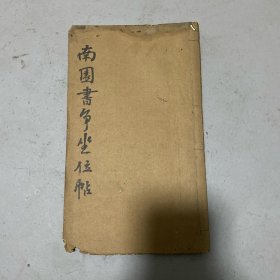 南園書争坐位帖